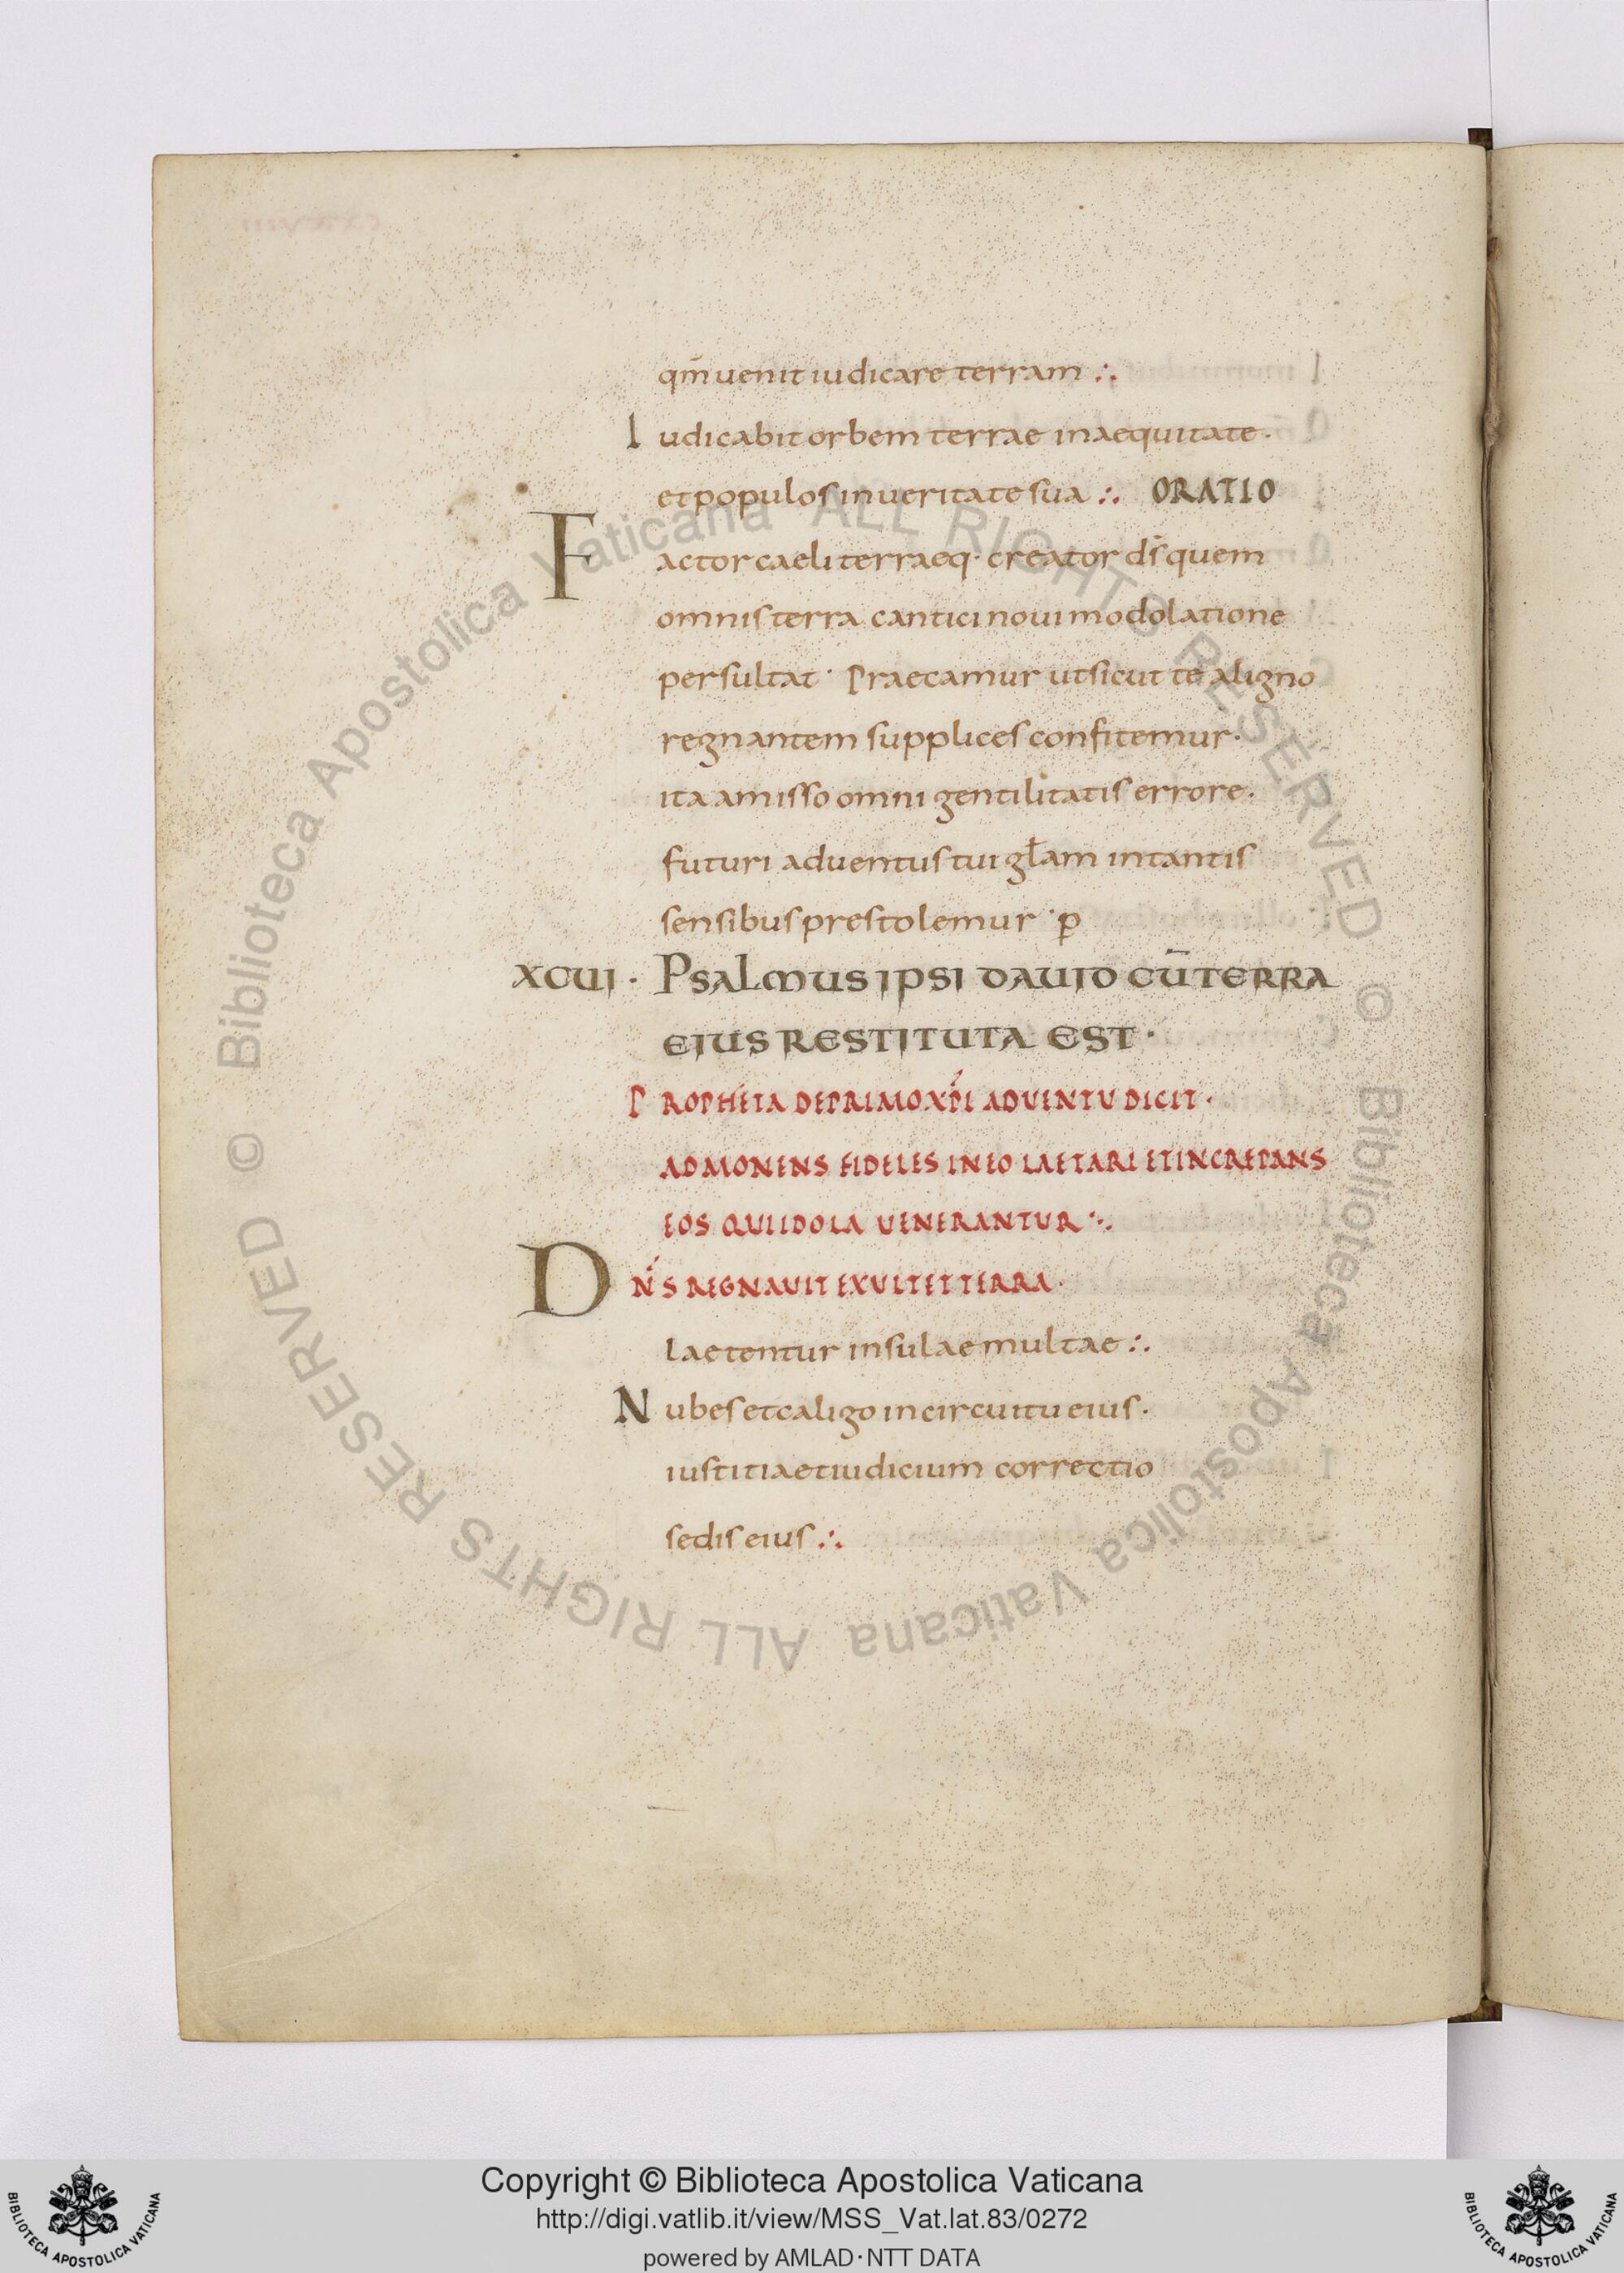 qm̄ uenit iudicare terram ∴
Iudicabit orbem terrae in aequitate ·
et populos in ueritate sua ∴ ORATIO
Factor caeli terraeq· creator ds̄ quem
omnis terra cantici noui modolatione
persultat · Praecamur ut sicut te a ligno
regnantem supplices confitemur ·
ita amisso omni gentilitatis errore ·
futuri aduentus tui gl̄am intantis
sensibus prestolemur · ꝑ
XCUI · PSALMUS IPSI DAUID CŪ TERRA
EIUS RESTITUTA EST ·
PROPHETA DE PRIMO XP̄I ADUENTU DICIT ·
ADMONENS FIDELES IN EO LAETARI ET INCREPANS
EOS QUI IDOLA UENERANTUR ∴
DN̄S REGNAUIT EXULTET TERRA ·
Laetentur insulae multae ∴
Nubes et caligo in circuitu eius ·
iustitia et iudicium correctio
sedis eius ∴
© Biblioteca Apostolica Vaticana ALL RIGHTS RESERVED © Biblioteca Apostolica Vaticana ALL RIGHTS RESERVED
Copyright © Biblioteca Apostolica Vaticana
http://digi.vatlib.it/view/MSS_Vat.lat.83/0272
powered by AMLAD·NTT DATA
BIBLIOTECA APOSTOLICA VATICANA
BIBLIOTECA APOSTOLICA VATICANA